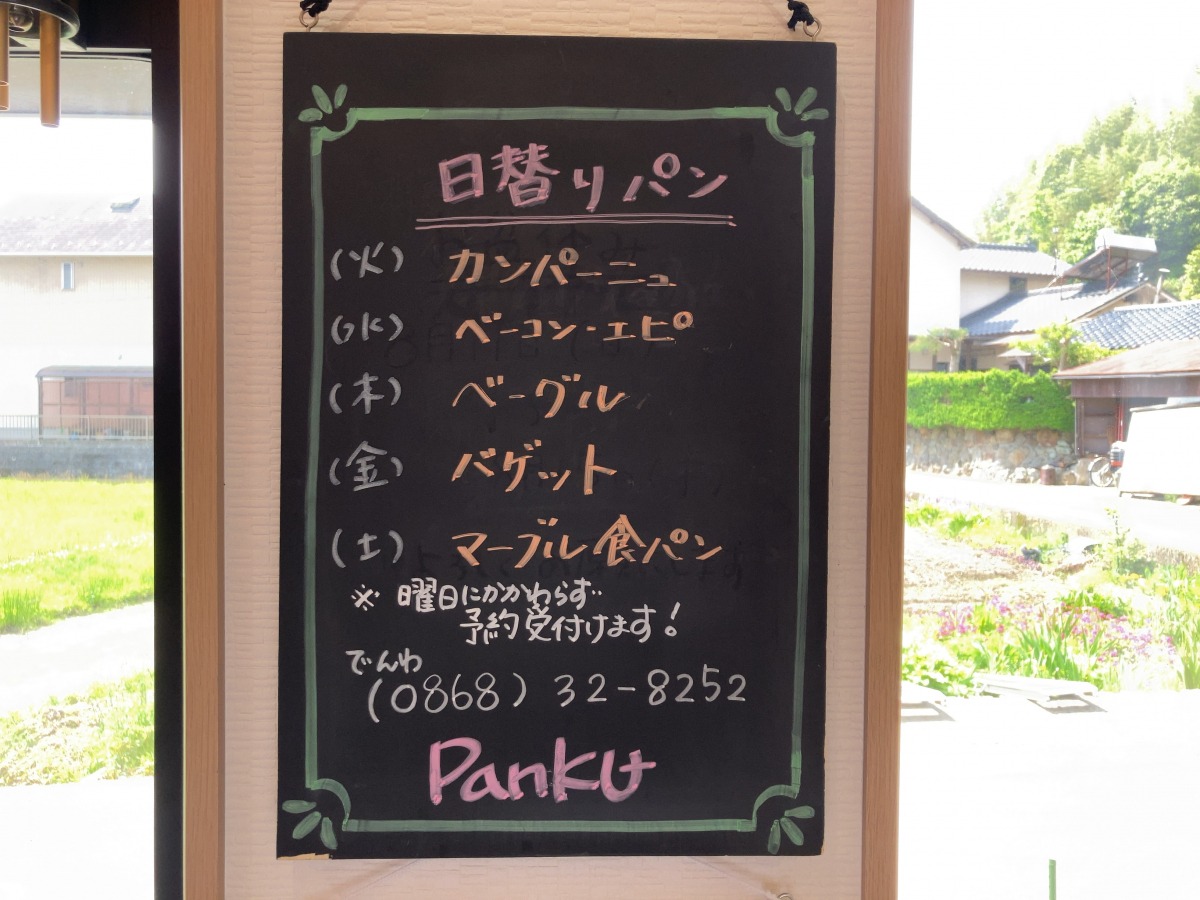 日替りパン
(火) カンパーニュ
(水) ベーコン・エピ
(木) ベーグル
(金) バゲット
(土) マーブル食パン
※ 曜日にかかわらず
予約受付けます!
でんわ
(0868) 32-8252
Panku